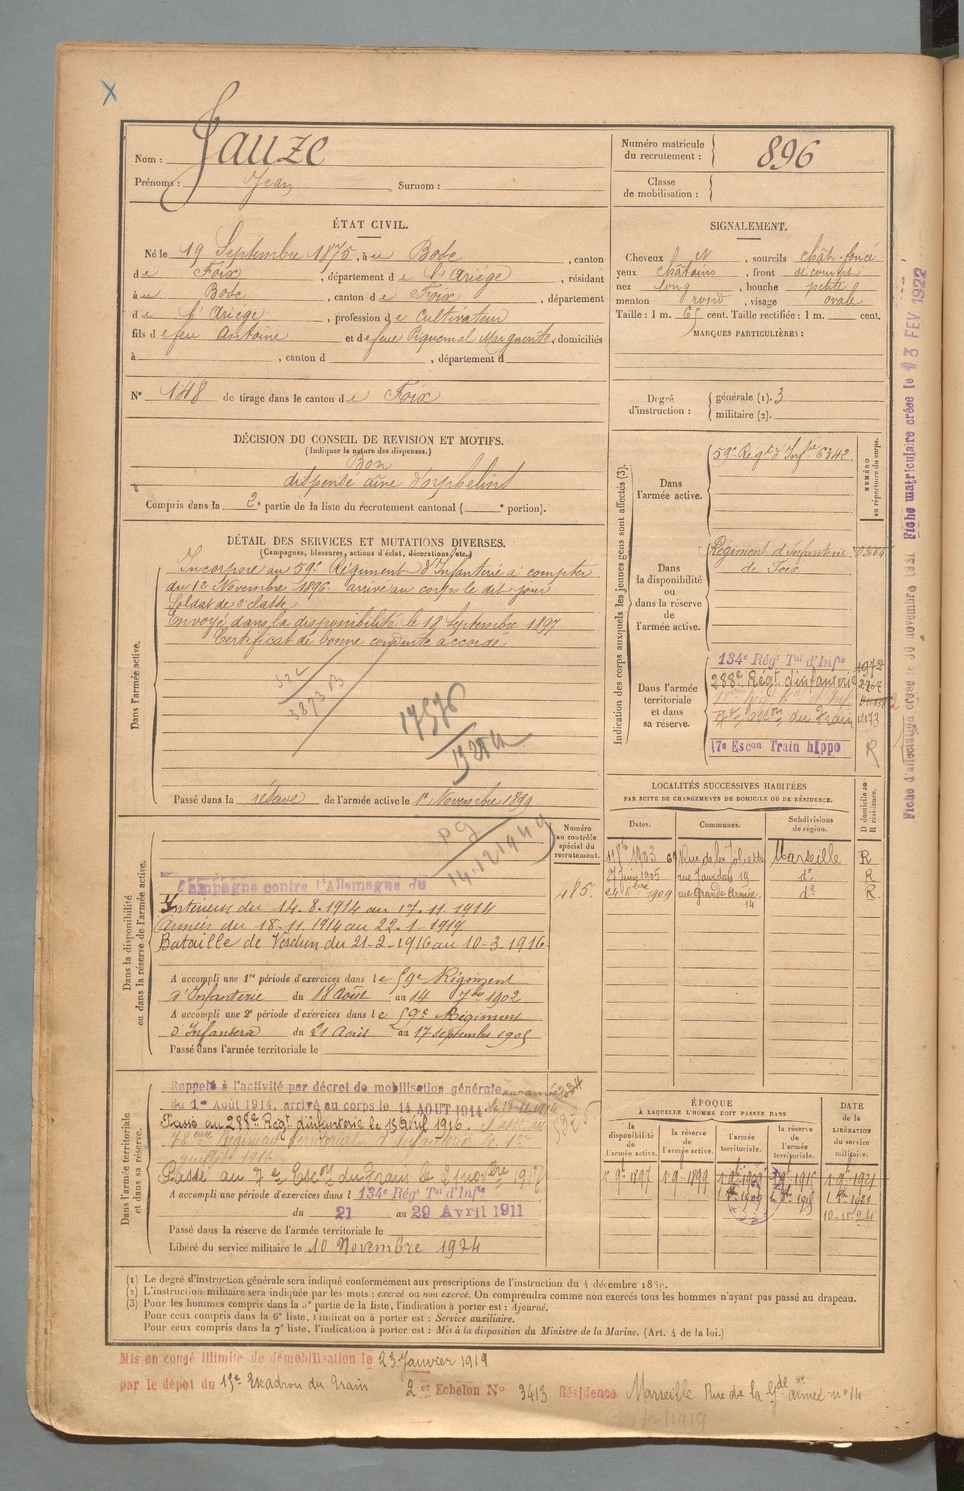 Nom : Jauze
Prénoms : Jean Surnom :
Numéro matricule du recrutement : 896
Classe de mobilisation :
ÉTAT CIVIL.
Né le 19 Septembre 1875, à Bosc, canton
de Foix, département de l'Ariège, résidant
à Bosc, canton de Foix, département
de l'Ariège, profession de Cultivateur
fils de feu Antoine et de feue Piquemal Marguerite, domiciliés
à , canton d , département d
N° 148 de tirage dans le canton de Foix
SIGNALEMENT.
Cheveux N, sourcils chât. foncé
yeux châtains, front découvert
nez long, bouche petite
menton rond, visage ovale
Taille : 1 m. 65 cent. Taille rectifiée : 1 m. cent.
MARQUES PARTICULIÈRES :
Degré d'instruction : générale (1). 3
militaire (2).
DÉCISION DU CONSEIL DE REVISION ET MOTIFS.
(Indiquer la nature des dispenses.)
Bon
dispensé aîné d'orphelins
Compris dans la 2e partie de la liste du recrutement cantonal ( e portion).
DÉTAIL DES SERVICES ET MUTATIONS DIVERSES.
(Campagnes, blessures, actions d'éclat, décorations, etc.)
Dans l'armée active.
Incorporé au 59e Régiment d'Infanterie à compter
du 1er Novembre 1896. arrivé au corps le dit jour
Soldat de 2e classe
Envoyé dans la disponibilité le 18 Septembre 1897
Certificat de bonne conduite accordé
3873 B
17576
Passé dans la réserve de l'armée active le 1er Novembre 1899
Indication des corps auxquels les jeunes gens sont affectés (3).
NUMÉRO au répertoire du corps.
Dans l'armée active.
59e Régt d'Infie 6342
Dans la disponibilité ou dans la réserve de l'armée active.
Régiment d'Infanterie
de Foix
Dans l'armée territoriale et dans sa réserve.
134e Régt Tal d'Infie 1972
288e Régt d'infanterie
du Train
17e Escon Train hippo R
Fiche d'affectation créée le 30 novembre 1931 Fiche matriculaire créée le 13 FEV 1922
LOCALITÉS SUCCESSIVES HABITÉES
PAR SUITE DE CHANGEMENTS DE DOMICILE OU DE RÉSIDENCE.
D domicile ou R résidence.
Dates. Communes. Subdivisions de région.
1903 69 Rue de la Joliette Marseille R
27 juin 1905 rue Jourdan 19 do R
24 8bre 1909 rue Grande Armée 14 do R
Dans la disponibilité ou dans la réserve de l'armée active.
Numéro au contrôle spécial du recrutement.
485
P.G.
Campagne contre l'Allemagne du
Intérieur du 14.8.1914 au 17.11.1914
Armées du 18-11.1914 au 22-1-1919
Bataille de Verdun du 21-2-1916 au 10-3-1916
A accompli une 1re période d'exercices dans le 59e Régiment
d'Infanterie du 18 Août au 14 7bre 1902
A accompli une 2e période d'exercices dans le 59e Régiment
d'Infanterie du 21 Août au 17 septembre 1905
Passé dans l'armée territoriale le
Dans l'armée territoriale et dans sa réserve.
Rappelé à l'activité par décret de mobilisation générale
du 1er Août 1914, arrivé au corps le 14 AOUT 1914
Passé au 288e Régt d'infanterie le 15 Avril 1916.
Passé au 7e Escon du Train le 2 novbre
A accompli une période d'exercices dans l 134e Régt Tal d'Infie
du 21 au 29 Avril 1911
Passé dans la réserve de l'armée territoriale le
Libéré du service militaire le 10 Novembre 1924
ÉPOQUE
À LAQUELLE L'HOMME DOIT PASSER DANS
la disponibilité de l'armée active. la réserve de l'armée active. l'armée territoriale. la réserve de l'armée territoriale.
DATE de la LIBÉRATION du service militaire.
1897 1899
10-11-24
(1) Le degré d'instruction générale sera indiqué conformément aux prescriptions de l'instruction du 4 décembre
(2) L'instruction militaire sera indiquée par les mots : exercé ou non exercé. On comprendra comme non exercés tous les hommes n'ayant pas passé au drapeau.
(3) Pour les hommes compris dans la 5e partie de la liste, l'indication à porter est : Ajourné.
Pour ceux compris dans la 6e liste, l'indication à porter est : Service auxiliaire.
Pour ceux compris dans la 7e liste, l'indication à porter est : Mis à la disposition du Ministre de la Marine. (Art. 4 de la loi.)
Mis en congé illimité de démobilisation le 23 Janvier 1919
par le dépôt du 15e Escadron du Train 2 Echelon N° 3413 Résidence Marseille Rue de la Gde armée n° 14